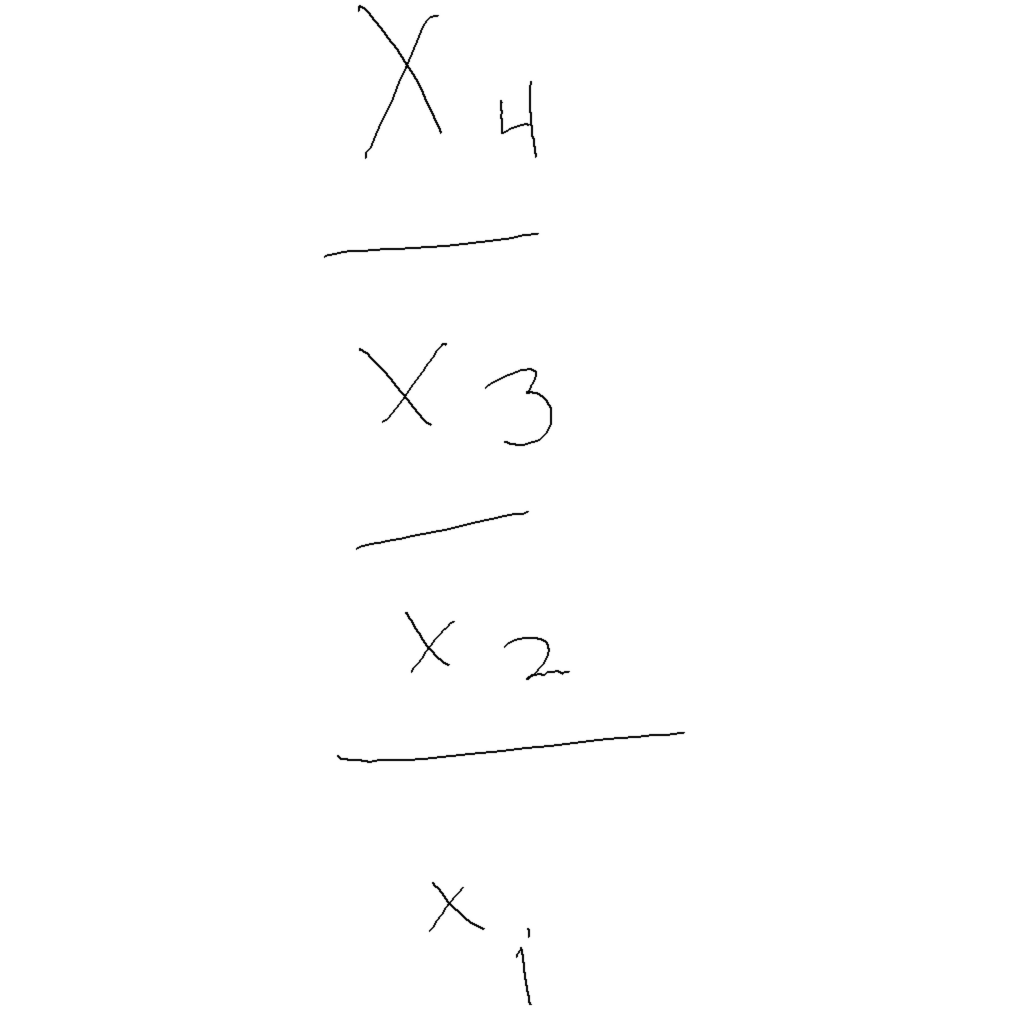 X 4
X 3
x 2
x i